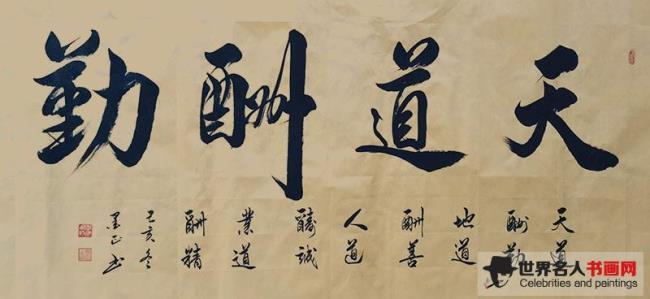 天道酬勤
天道
酬勤
地道
酬善
人道
醻誠
業道
酬精
己亥冬
书
世界名人书画网
Celebrities and paintings